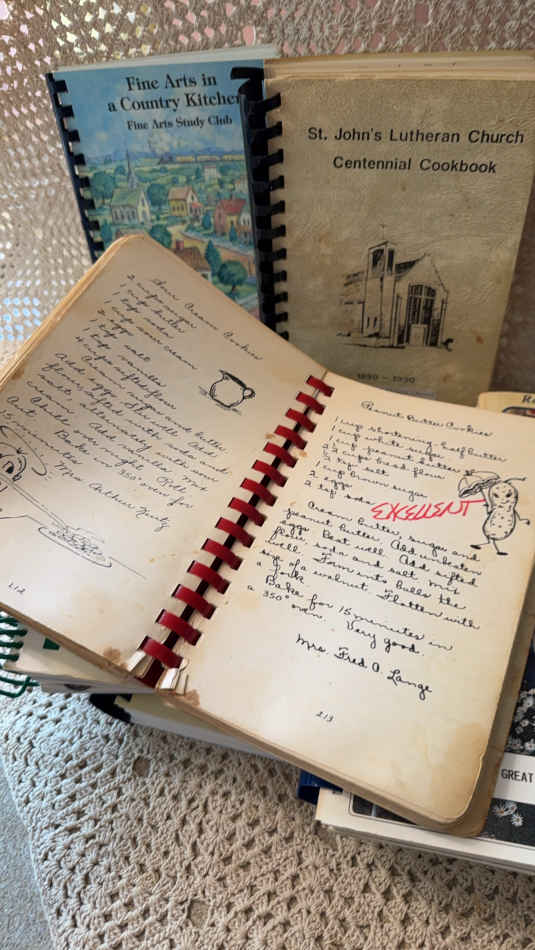 Fine Arts in
a Country Kitchen
Fine Arts Study Club
St. John's Lutheran Church
Centennial Cookbook
1890 - 1990
Sour Cream Cookies
2 cups sugar
1 cup butter
1 tsp. soda
2 eggs
1 cup sour cream
1 tsp. salt
4 cups sifted flour
Cream sugar and butter.
Add eggs
flour,
cream
Chill over night. Roll
cut. Bake in 350° oven for
15 minutes
Mrs. Arthur
212
Peanut Butter Cookies
1 cup shortening-half butter
1 cup white sugar
1 cup peanut butter
2 1/2 cups bread flour
1/2 tsp. salt
1 cup brown sugar
2 eggs
2 tsp soda
EXCELLENT
Cream butter, sugar and
peanut butter. Add unbeaten
eggs. Beat well. Add sifted
flour, soda and salt. Mix
well. Form into balls the
size of a walnut. Flatten with
a fork.
Bake for 15 minutes in
a 350° oven. Very good.
Mrs. Fred A. Lange
213
GREAT